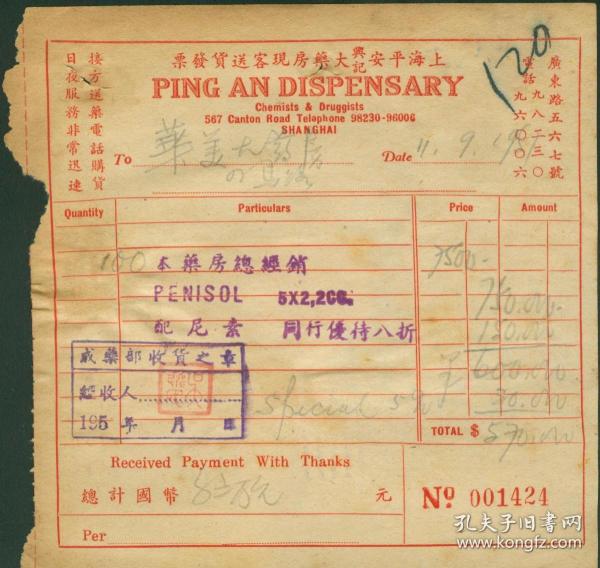 上海平安興記大藥房現客送貨發票
PING AN DISPENSARY
Chemists & Druggists
567 Canton Road Telephone 98230-96006
SHANGHAI
廣東路五六七號
電話九八二三〇
九六〇〇六
接方送藥電話購貨
日夜服務非常迅速
120
To 華美大藥房
Date 11. 9. 1951
Quantity Particulars Price Amount
100 本藥房總經銷 7500-
PENISOL 5X2,2CC. 750.000-
配尼素 同行優待八折 150.000
600.000
Special 5% 30.000
成藥部收貨之章
經收人
195 年 月 日
TOTAL $ 570.000
Received Payment With Thanks
總計國幣 元
Nº 001424
Per
孔夫子旧书网
www.kongfz.com